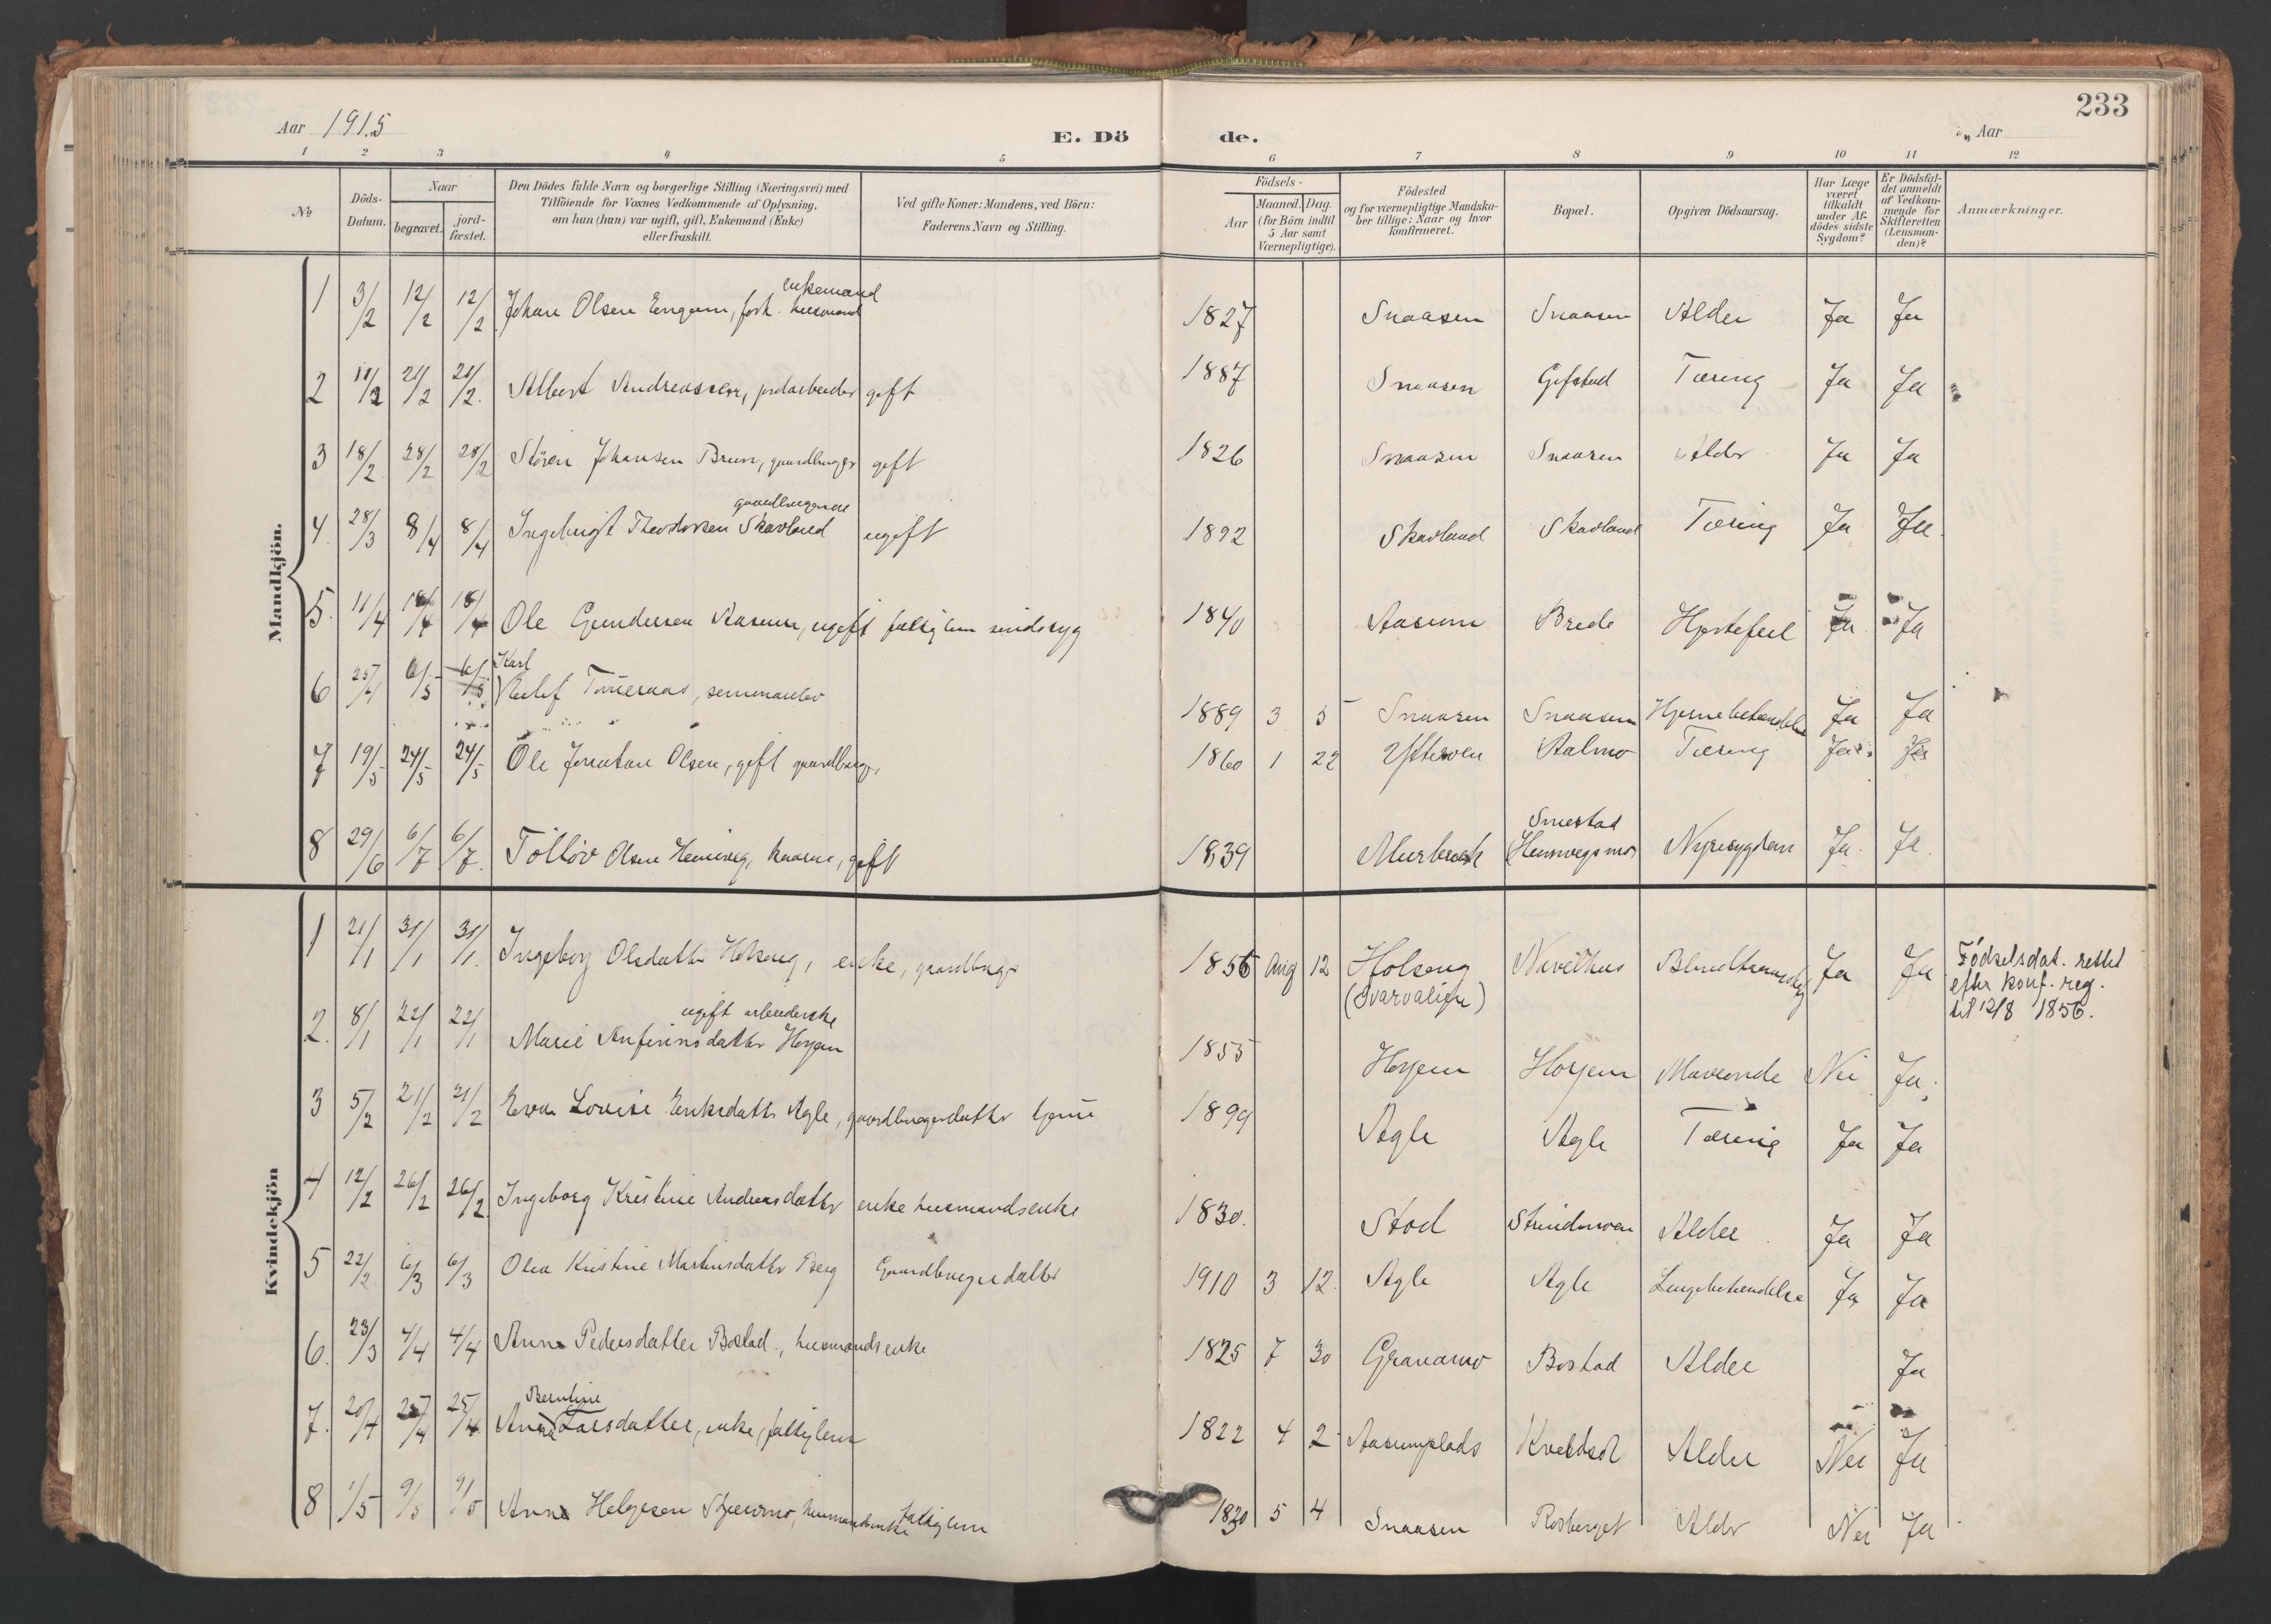 233
Aar 1915
E. Dö
de.
Aar
1 2 3 4 5 6 7 8 9 10 11 12
No
Döds-
Datum.
Naar
begravet.
jord-
fæstet.
Den Dödes fulde Navn og borgerlige Stilling (Næringsvei) med
Tilföiende for Voxnes Vedkommende af Oplysning,
om han (hun) var ugift, gift, Enkemand (Enke)
eller fraskilt.
Ved gifte Koner: Mandens, ved Börn:
Faderens Navn og Stilling.
Födsels-
Aar
Maaned. Dag.
(for Börn indtil
5 Aar samt
Værnepligtige).
Födested
og for værnepligtige Mandska-
ber tillige: Naar og hvor
konfirmeret.
Bopæl.
Opgiven Dödsaarsag.
Har Læge
været
tilkaldt
under Af-
dödes sidste
Sygdom?
Er Dödsfal-
det anmeldt
af Vedkom-
mende for
Skifteretten
(Lensman-
den)?
Anmærkninger.
Mandkjön.
enkemand
1 3/2 12/2 12/2 Johan Olsen Engum, forh. husmand 1827 Snaasen Snaasen Alder Ja Ja
2 11/2 21/2 21/2. Albert Andreassen, jordarbeider gift 1887 Snaasen Gifstad Tæring Ja Ja
3 18/2 28/2 28/2 Sören Johansen Brun, gaardbruger gift 1826 Snaasen Snaasen Alder Ja Ja
gaardbrugersøn
4. 28/3 8/4 8/4 Ingebrigt Theodorsen Skavland ugift 1892 Skavland Skavland Tæring Ja Ja
5. 11/4 18/4 18/4 Ole Gundersen Aasum, ugift fattiglem sindssyg 1840 Aasum Brede Hjertefeil Ja Ja
Karl
6 25/4 6/5 6/5 Tømeraas, seminarelev 1889 3 5 Snaasen Snaasen Hjernebetændelse Ja Ja
7 19/5 24/5 24/5 Ole Jonatan Olsen, gift gaardbruger 1860 1 22 Aalmo Tæring Ja Ja
Smestad
8 29/6 6/7 6/7. Tölløv Olsen gift 1839 Nyresygdom Ja Ja
Kvindekjön
1 21/1 31/1 31/1. Ingeborg Olsdatter Holseng, enke, gaardbruger 1856 Aug 12 Holseng Ja Ja Födselsdat. rettet
efter konf. reg.
til 12/8 1856.
ugift arbeiderske
2. 8/1 22/1 22/1 Marie Anfinnsdatter Hojem 1855 Hojem Hojem Mavonde Nei Ja.
3 5/2 21/2 21/2 Eva Lovise Eriksdatter Agle, gaardbrugerdatter 1899 Agle Agle Tæring Ja Ja
4 12/2 26/2 26/2. Ingeborg Kristine Andreasdatter enke husmandsenke 1830. Stod Strindmoen Alder Ja Ja
5 22/2 6/3 6/3 Olea Kristine Martinsdatter Berg Gaardbrugerdatter 1910 3 12. Agle Agle Lungebetændelse Ja Ja
6. 23/3 4/4 4/4 Anne Pedersdatter Bostad., husmandsenke 1825 7 30 Granamo Bostad Alder Ja
Berntine
7. 20/4 25/4 25/4 Anna Larsdatter, enke, fattiglem 1822 4 2 Aasumplads Kveldsol Alder Nei Ja
8 1/5 9/5 9/5 Anne Helgesen husmandsenke fattiglem 1830 5 4 Snaasen Rosberget Alder Nei Ja